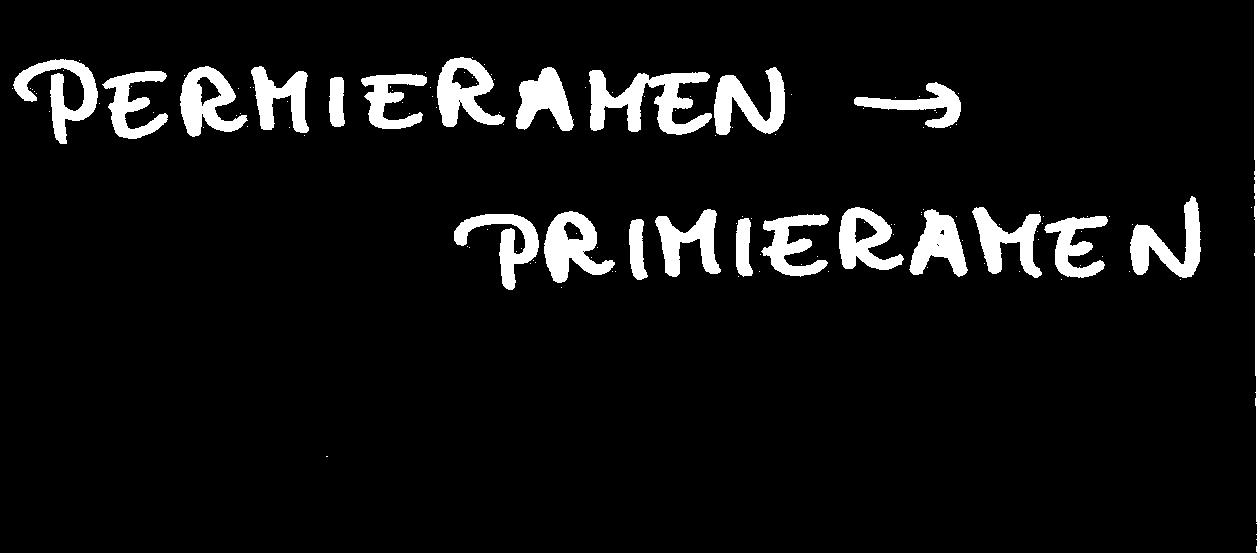 PERMIERAMEN →
PRIMIERAMEN